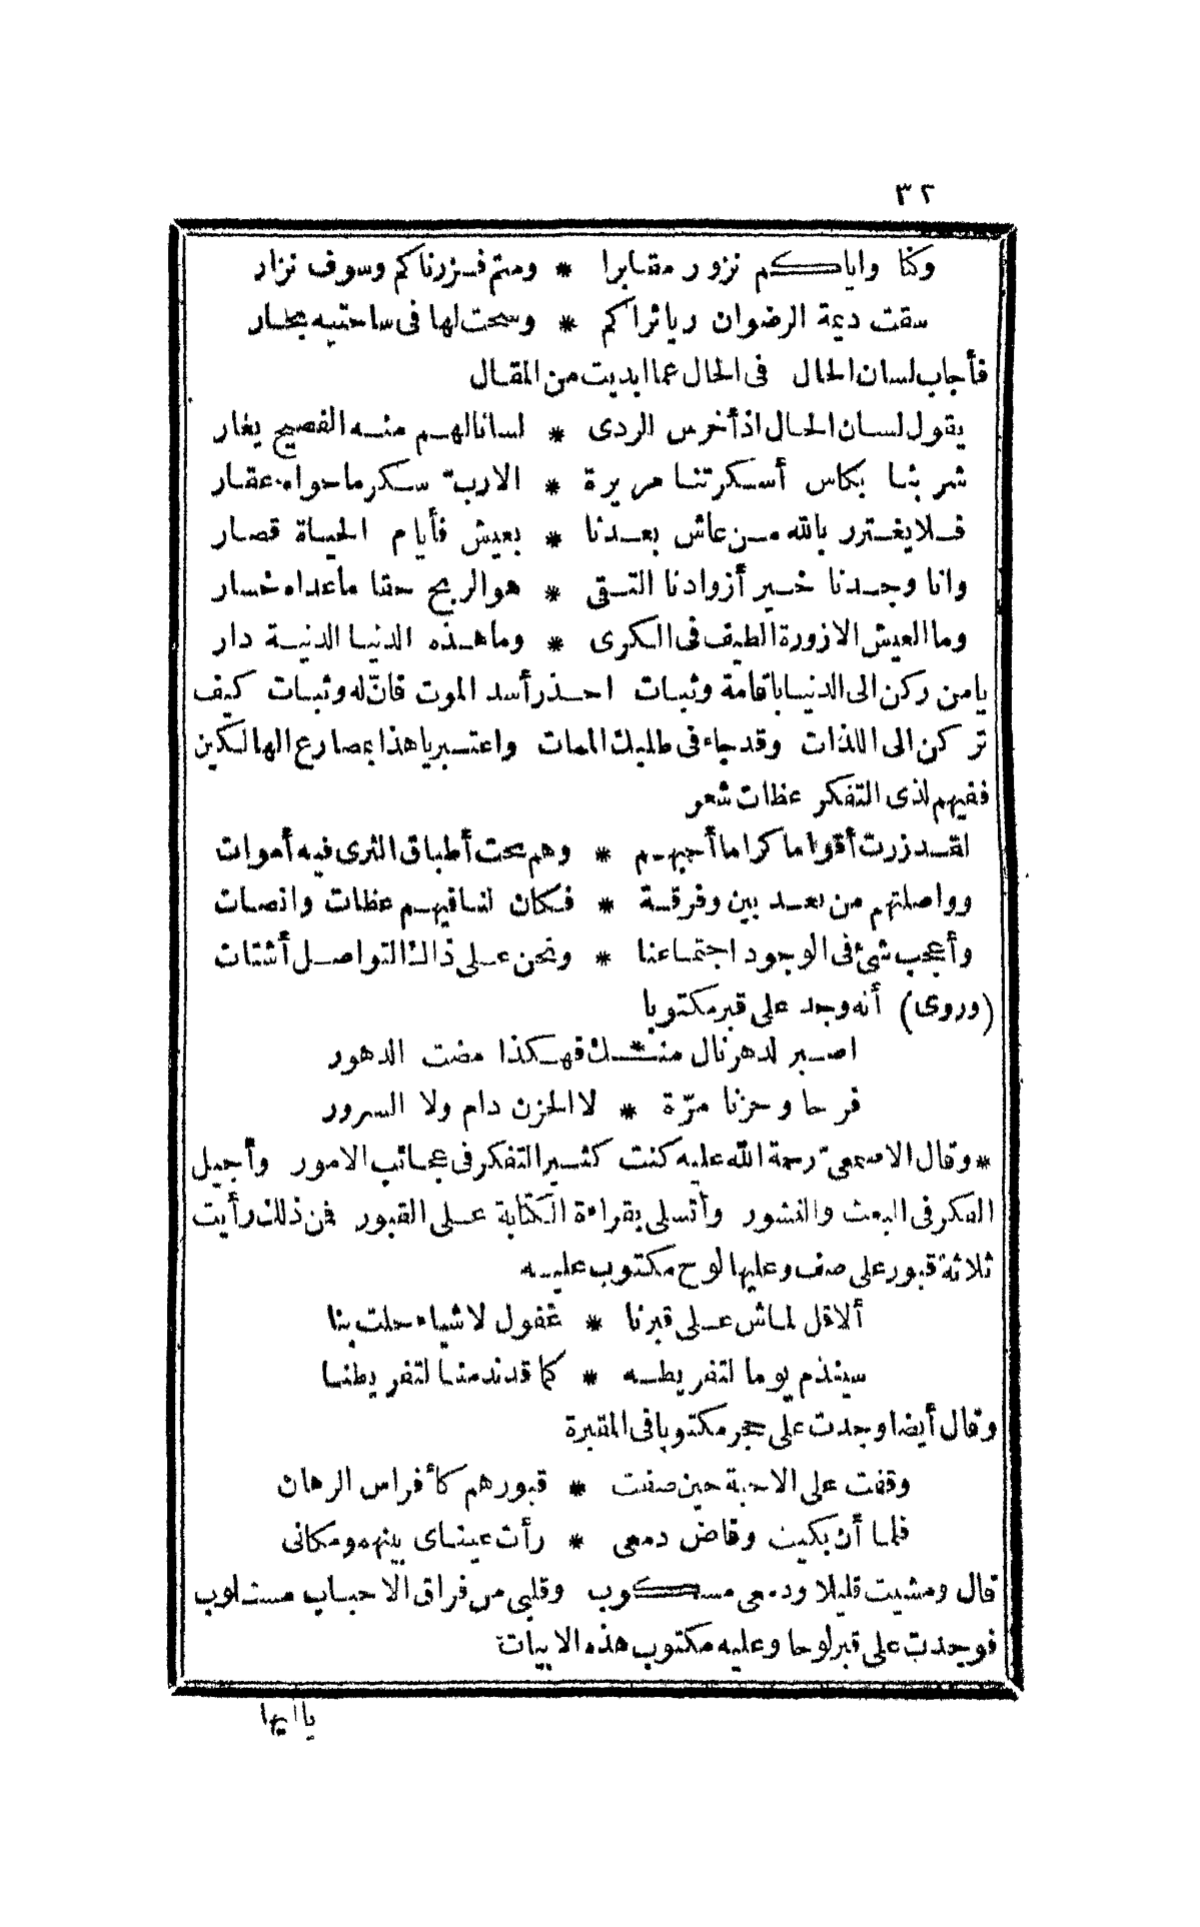 ٣٢
وكنا واياكم نزور مقابرا * ومتم فزرناكم وسوف نزار
سقت ديمة الرضوان ريا ثراكم * وسحت لها فى ساحتيه بحار
فأجاب لسان الحال فى الحال عما ابديت من المقال
يقول لسان الحال اذ أخرس الردى * لسانا لهم منه الفصيح يغار
شربنا بكاس أسكرتنا مريرة * الا رب سكر ما حواه عقار
فلا يغترر بالله من عاش بعدنا * بعيش فأيام الحياة قصار
وانا وجدنا خير أزوادنا التقى * هو الربح حقا ما عداه خسار
وما العيش الا زورة الطيف فى الكرى * وما هذه الدنيا الدنية دار
يا من ركن الى الدنيا باقامة وثبات احذر أسد الموت فانّ له وثبات كيف
تركن الى اللذات وقد جاء فى طلبك الممات واعتبر يا هذا بمصارع الهالكين
ففيهم لذى التفكر عظات شعر
لقد زرت أقواما كراما أحبهم * وهم تحت أطباق الثرى فيه أموات
وواصلتهم من بعد بين وفرقة * فكان لنا فيهم عظات وانصات
وأعجب شئ فى الوجود اجتماعنا * ونحن على ذاك التواصل أشتات
(وروى) أنه وجد على قبر مكتوبا
اصبر لدهر نال منك * فهكذا مضت الدهور
فرحا وحزنا مرّة * لا الحزن دام ولا السرور
* وقال الاصمعى رحمة الله عليه كنت كثير التفكر فى عجائب الامور وأجيل
الفكر فى البعث والنشور وأتسلى بقراءة الكتابة على القبور فمن ذلك رأيت
ثلاثة قبور على صف وعليها لوح مكتوب عليه
ألا قل لماش على قبرنا * غفول لاشياء حلت بنا
سيندم يوما لتفريطه * كما قد ندمنا لتفريطنا
وقال أيضا وجدت على حجر مكتوبا فى المقبرة
وقفت على الاحبة حين صفت * قبورهم كأفراس الرهان
فلما أن بكيت وفاض دمعى * رأت عيناى بينهم ومكانى
قال ومشيت قليلا ودمعى مسكوب وقلبى من فراق الاحباب مسلوب
فوجدت على قبر لوحا وعليه مكتوب هذه الابيات
يا أيها